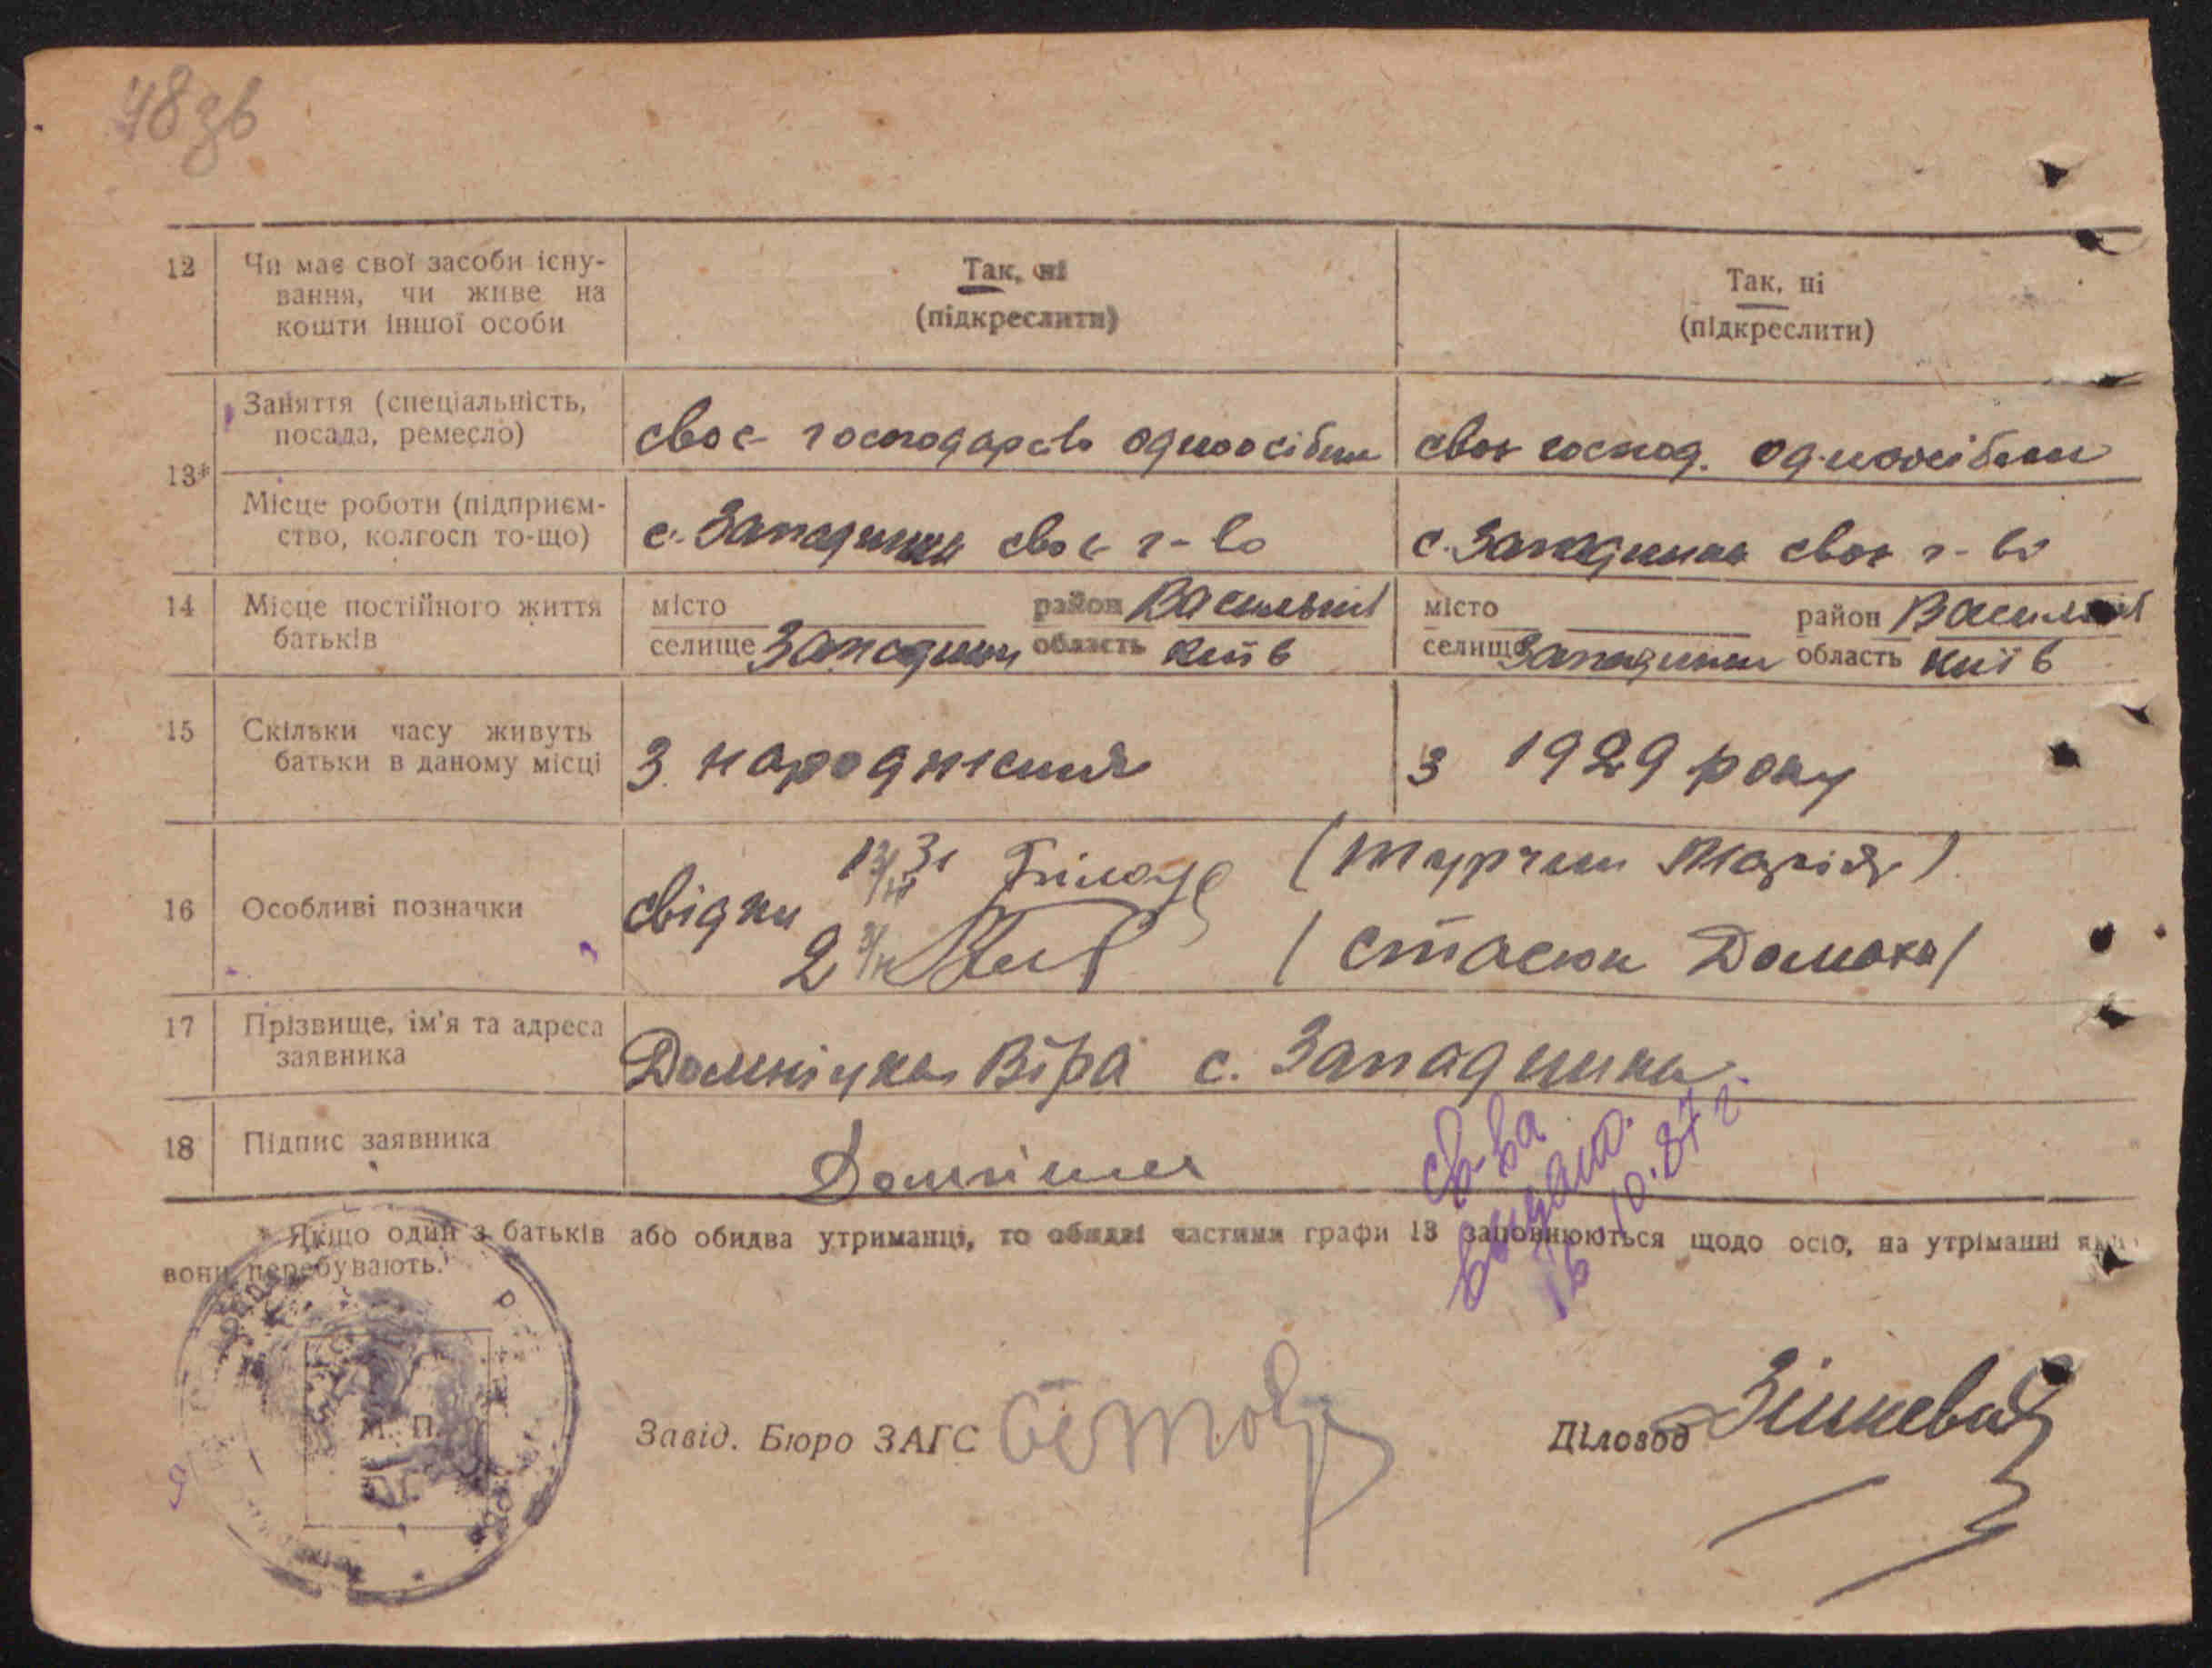 48зв
12 Чи має свої засоби існу-
вання, чи живе на
кошти іншої особи
Так, ні
(підкреслити)
Так, ні
(підкреслити)
13*
Заняття (спеціальність,
посада, ремесло)
своє господарство одноосібне
своє господ. одноосібне
Місце роботи (підприєм-
ство, колгосп то-що)
с. Западинка своє г-во
с. Западинка своє г-во
14 Місце постійного життя
батьків
місто район Васильків
селище Западинка область Київ
місто район Васильків
селище Западинка область Київ
15 Скільки часу живуть
батьки в даному місці
З народження
з 1929 року
16 Особливі позначки
свідки
1
(Турчин Марія)
2
(Стасюк Домаха)
17 Прізвище, ім'я та адреса
заявника
Віра с. Западинка
18 Підпис заявника
св-ва
видано.
16.10.87 г.
* Якщо один з батьків або обидва утриманці, то обидві частини графи 13 заповнюються щодо осіб, на утріманні яких
вони перебувають.
М. П.
Завід. Бюро ЗАГС
Діловод Зінкевич